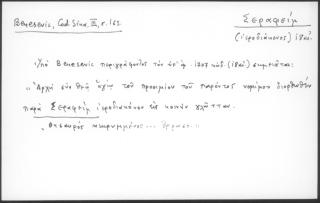 Benesevic, Cod. Sina. III, 1. 162.
Σεραφείμ
(ἱεροδιάκονος) 18αι.
Ὑπὸ Benesevic περιγράφοντος τὸν ὑπ' ἀρ. 1707 κώδ. (18αι) σημειοῦται:
"Ἀρχὴ σὺν Θεῷ ἁγίῳ τοῦ προοιμίου τοῦ παρόντος νομίμου διορθωθὲν
παρὰ Σεραφεὶμ ἱεροδιακόνου εἰς κοινὴν γλῶτταν.
"Θησαυρὸς κεκρυμμένος...